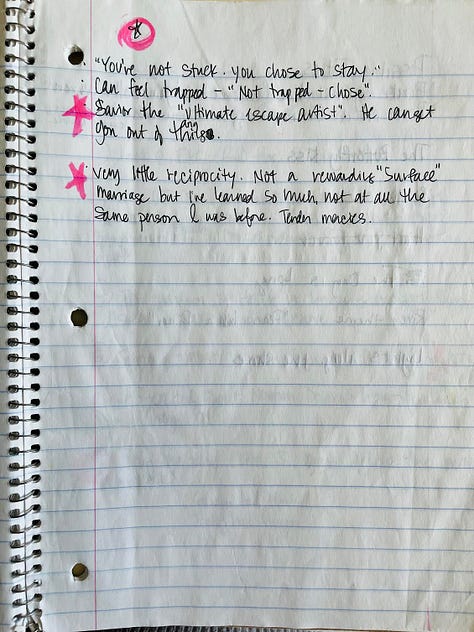 "You're not stuck. you chose to stay."
Can feel trapped - "Not trapped - chose".
Savior the "ultimate escape artist". He can get
you out of anything.
Very little reciprocity. Not a rewarding "surface"
marriage but I've learned so much, not at all the
same person I was before. Tender mercies.